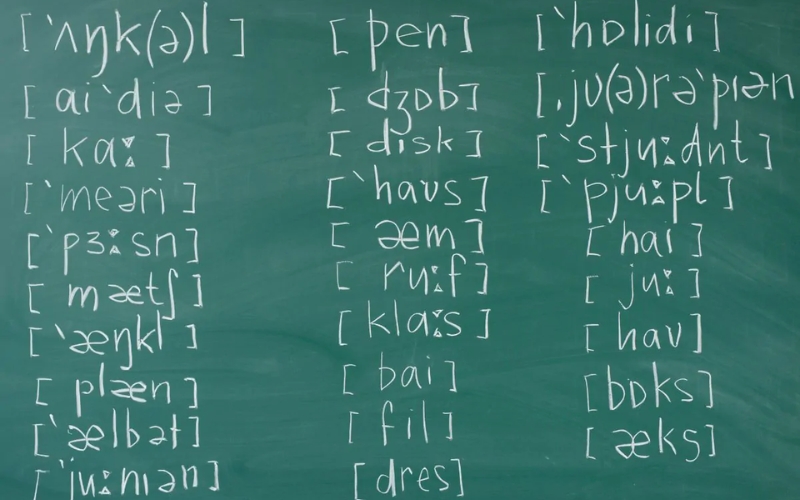 [ˋʌŋk(ə)l]
[aiˋdiə]
[kaː]
[ˋmeəri]
[ˋpɜːsn]
[mætʃ]
[ˋæŋkl]
[plæn]
[ˋælbət]
[ˋjuːnɪən]
[pen]
[dʒɒb]
[disk]
[ˋhaʊs]
[æm]
[ruːf]
[klaːs]
[bai]
[fil]
[dres]
[ˋhɒlidi]
[ˌjʊ(ə)rəˋpɪən
[ˋstjuːdnt]
[ˋpjuːpl]
[hai]
[juː]
[haʊ]
[bɒks]
[æks]